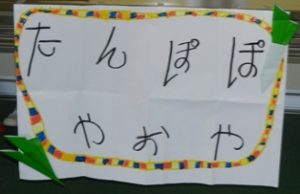 たんぽぽ
やおや